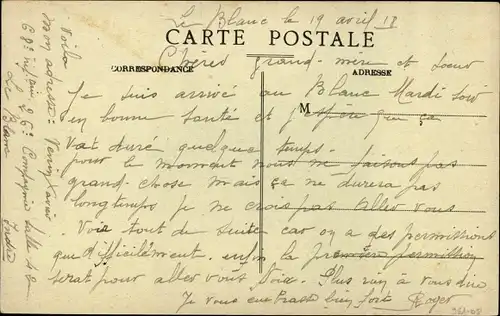 Le Blanc le 19 avril 18
CARTE POSTALE
Chères grand-mère et soeur
CORRESPONDANCE
ADRESSE
Je suis arrivé au Blanc Mardi soir
M
en bonne santé et j'espère que ça
Vat duré quelque temps.
pour le moment nous ne faisons pas
grand-chose mais ça ne durera pas
longtemps je ne crois pas aller vous
Voir tout de suite car on a des permissions
que difficilement. enfin la première permission
serat pour aller vous Voir. Plus rien à vous dire
Je vous embrasse bien fort Roger
Voila
mon adresse:
68e inf 26e Compagnie
Le Blanc Indre